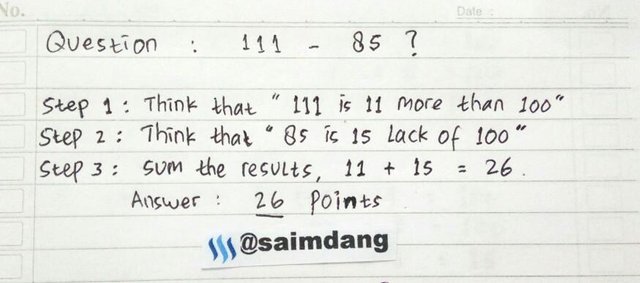 No.
Date :
Question : 111 - 85 ?
Step 1 : Think that " 111 is 11 more than 100 "
Step 2 : Think that " 85 is 15 Lack of 100 "
Step 3 : sum the results, 11 + 15 = 26 .
Answer : 26 Points
@saimdang